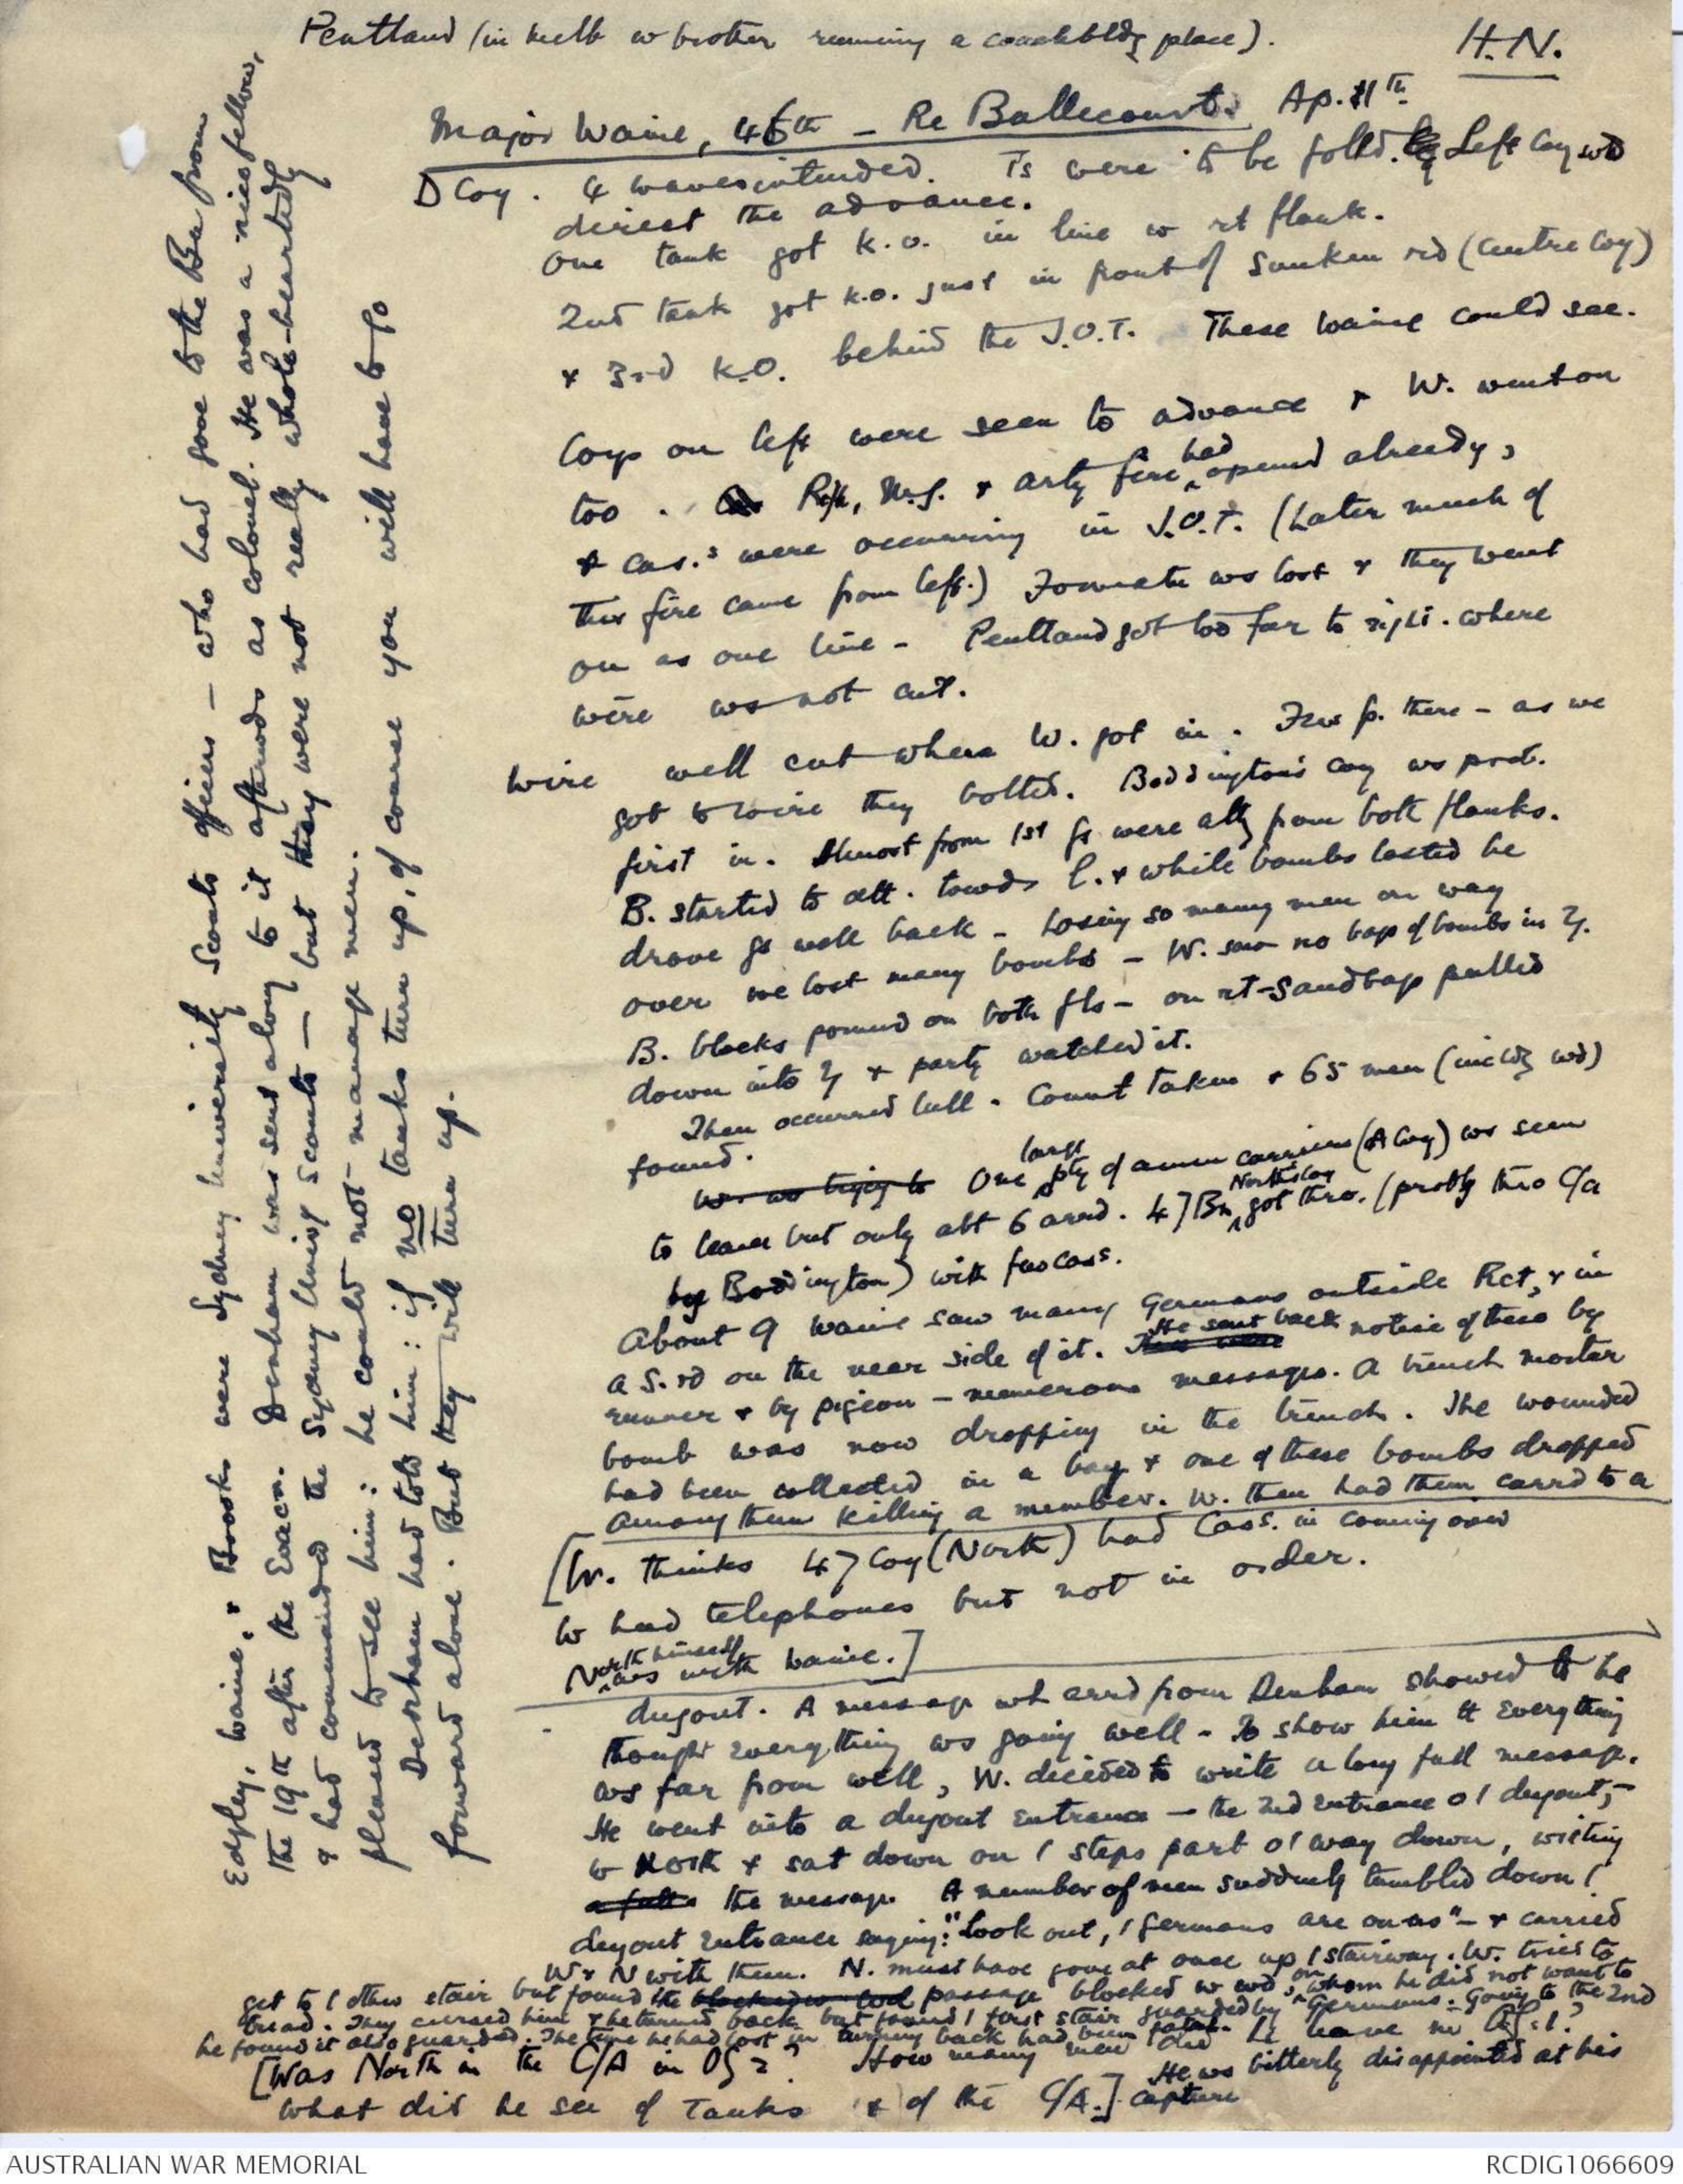 Pentland (in Melb w brother running a coachbldg place).
H.N.
Major Waine, 46th - Re Bullecourt. Ap. 11th
D Coy. 4 waves intended. Ts were to be folld. by Left Coy wd
direct the advance.
One tank got k.o. in line w rt flank.
2nd tank got k.o. just in front of Sunken rd (Centre Coy)
& 3rd K.O. behind the J.O.T. These Waine could see.
Coys on left were seen to advance & W. went on
too. Rifle, M.G. & arty fire had opened already,
& cas.s were occurring in J.O.T. (Later much of
this fire came from left.) Formatn ws lost & they went
on as one line - Pentland got too far to right. where
wire ws not cut.
Wire well cut where W. got in. Few G. there - as we
got to wire they bolted. Boddington's coy ws prob.
first in. Almost from 1st Gs were attg from both flanks.
B. started to att. towds l. & while bombs lasted he
drove Gs well back - Losing so many men on way
over we lost many bombs - W. saw no bags of bombs in
B. blocks formed on both fls - on rt - Sandbags pulled
down into & party watched it.
Then occurred lull. Count taken & 65 men (incldg wd)
found.
W. ws trying to One large pty of ammn carriers (A Coy) ws seen
to leave but only abt 6 arrd. 47 Bn North's Coy got thro. (probly thro C/a
by Boddington) with few cass.
About 9 Waine saw many Germans outside Rct, & in
a S. rd on the near side of it. He sent back notice of these by
runner & by pigeon - numerous messages. A trench mortar
bomb was now dropping in the trench. The wounded
had been collected in a bay & one of these bombs dropped
among them killing a number. W. then had them carrd to a
[W. thinks 47 Coy (North) had Cass. in coming over
W had telephones but not in order.
North himself was with Waine.]
dugout. A message wh arrd from Denham showed tt he
thought everything ws going well - To show him tt everything
ws far from well, W. decided to write a long full message.
He went into a dugout entrance - the 2nd entrance o / dugout, -
w North & sat down on / steps part o / way down, writing
a full the message. A number of men suddenly tumbled down /
dugout entrance saying: "Look out, / Germans are on us" - & carried
W & N with them. N. must have gone at once up / stairway. W. tried to
get to / other stair but found the blocked w wd passage blocked w wd, on whom he did not want to
tread. They cursed him & he turned back but found / first stair guarded by Germans. Going to the 2nd
he found it also guarded. The time he had lost in turning back had been fatal.
He ws bitterly disappointed at his
capture
[Was North in the C/A in OG 2? How many men did he have in OG.1?
What did he see of Tanks & of the C/A.]
Edgley, Waine, & Brooks were Sydney University Scouts officers - who had gone to the Bn from
the 19th after the Evacn. Denham was sent along to it afterwds as colonel. He was a nice fellow,
& had commanded the Sydney Univ. Scouts - but they were not really whole-heartedly
pleased to see him: he could not manage men.
Denham had told him: if no tanks turn up, of course you will have to go
forward alone. But they will turn up.
AUSTRALIAN WAR MEMORIAL
RCDIG1066609